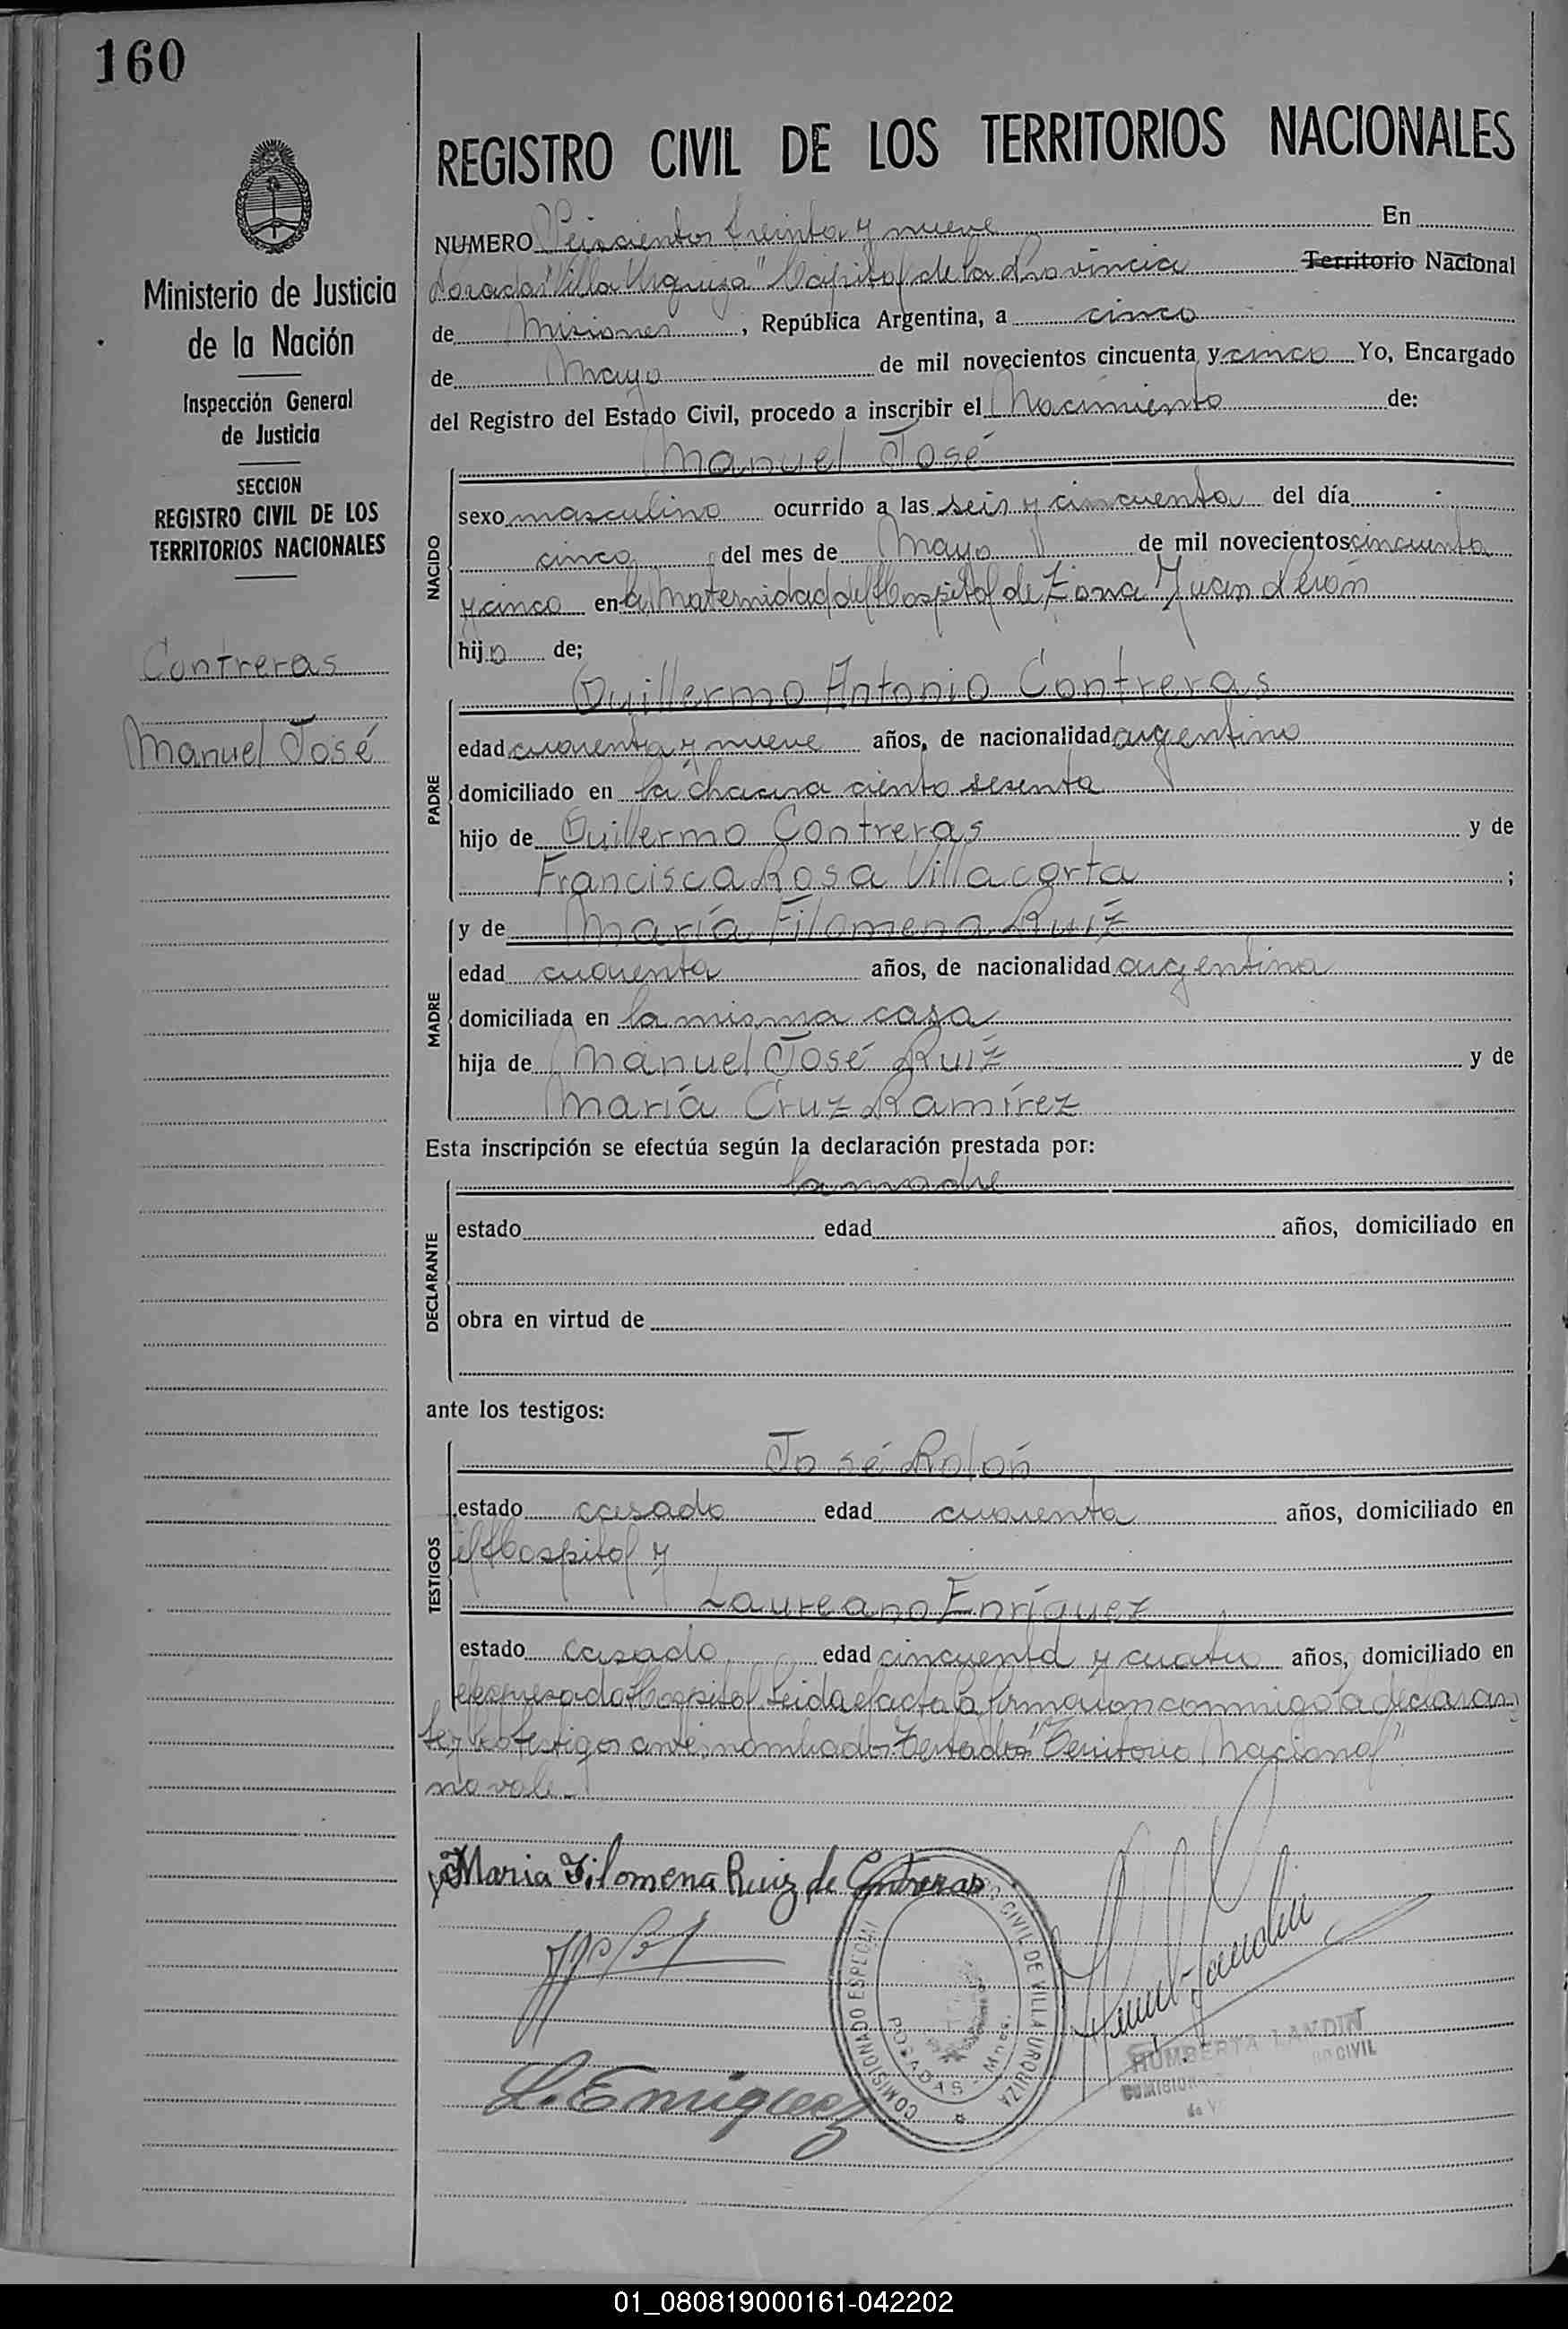 160
REGISTRO CIVIL DE LOS TERRITORIOS NACIONALES
Ministerio de Justicia
de la Nación
Inspección General
de Justicia
SECCION
REGISTRO CIVIL DE LOS
TERRITORIOS NACIONALES
Contreras
Manuel José
NUMERO Seiscientos treinta y nueve En
Posadas "Villa Urquiza" Capital de la Provincia Territorio Nacional
de Misiones, República Argentina, a cinco
de Mayo de mil novecientos cincuenta y cinco Yo, Encargado
del Registro del Estado Civil, procedo a inscribir el Nacimiento de:
Manuel José
NACIDO
sexo masculino ocurrido a las seis y cincuenta del día
cinco del mes de Mayo de mil novecientos cincuenta
y cinco en la Maternidad del Hospital de Zona Juan Perón
hijo de;
Guillermo Antonio Contreras
PADRE
edad cuarenta y nueve años, de nacionalidad argentino
domiciliado en la chacra ciento sesenta
hijo de Guillermo Contreras y de
Francisca Rosa Villacorta ;
y de María Filomena Ruíz
MADRE
edad cuarenta años, de nacionalidad argentina
domiciliada en la misma casa
hija de Manuel José Ruíz y de
María Cruz Ramírez
Esta inscripción se efectúa según la declaración prestada por:
la madre
DECLARANTE
estado edad años, domiciliado en
obra en virtud de
ante los testigos:
José Rolón
TESTIGOS
estado casado edad cuarenta años, domiciliado en
el Hospital y
Laureano Enríquez
estado casado edad cincuenta y cuatro años, domiciliado en
el expresado Hospital. Leida el acta la firmaron conmigo la declaran-
te y los testigos antes nombrados. Testados "Territorio Nacional"
no vale.-
Maria Filomena Ruiz de Contreras
L. Enriquez
COMISIONADO ESPECIAL CIVIL DE VILLA URQUIZA
POSADAS - Mnes.
HUMBERTA LANDIN
CIVIL
01_080819000161-042202